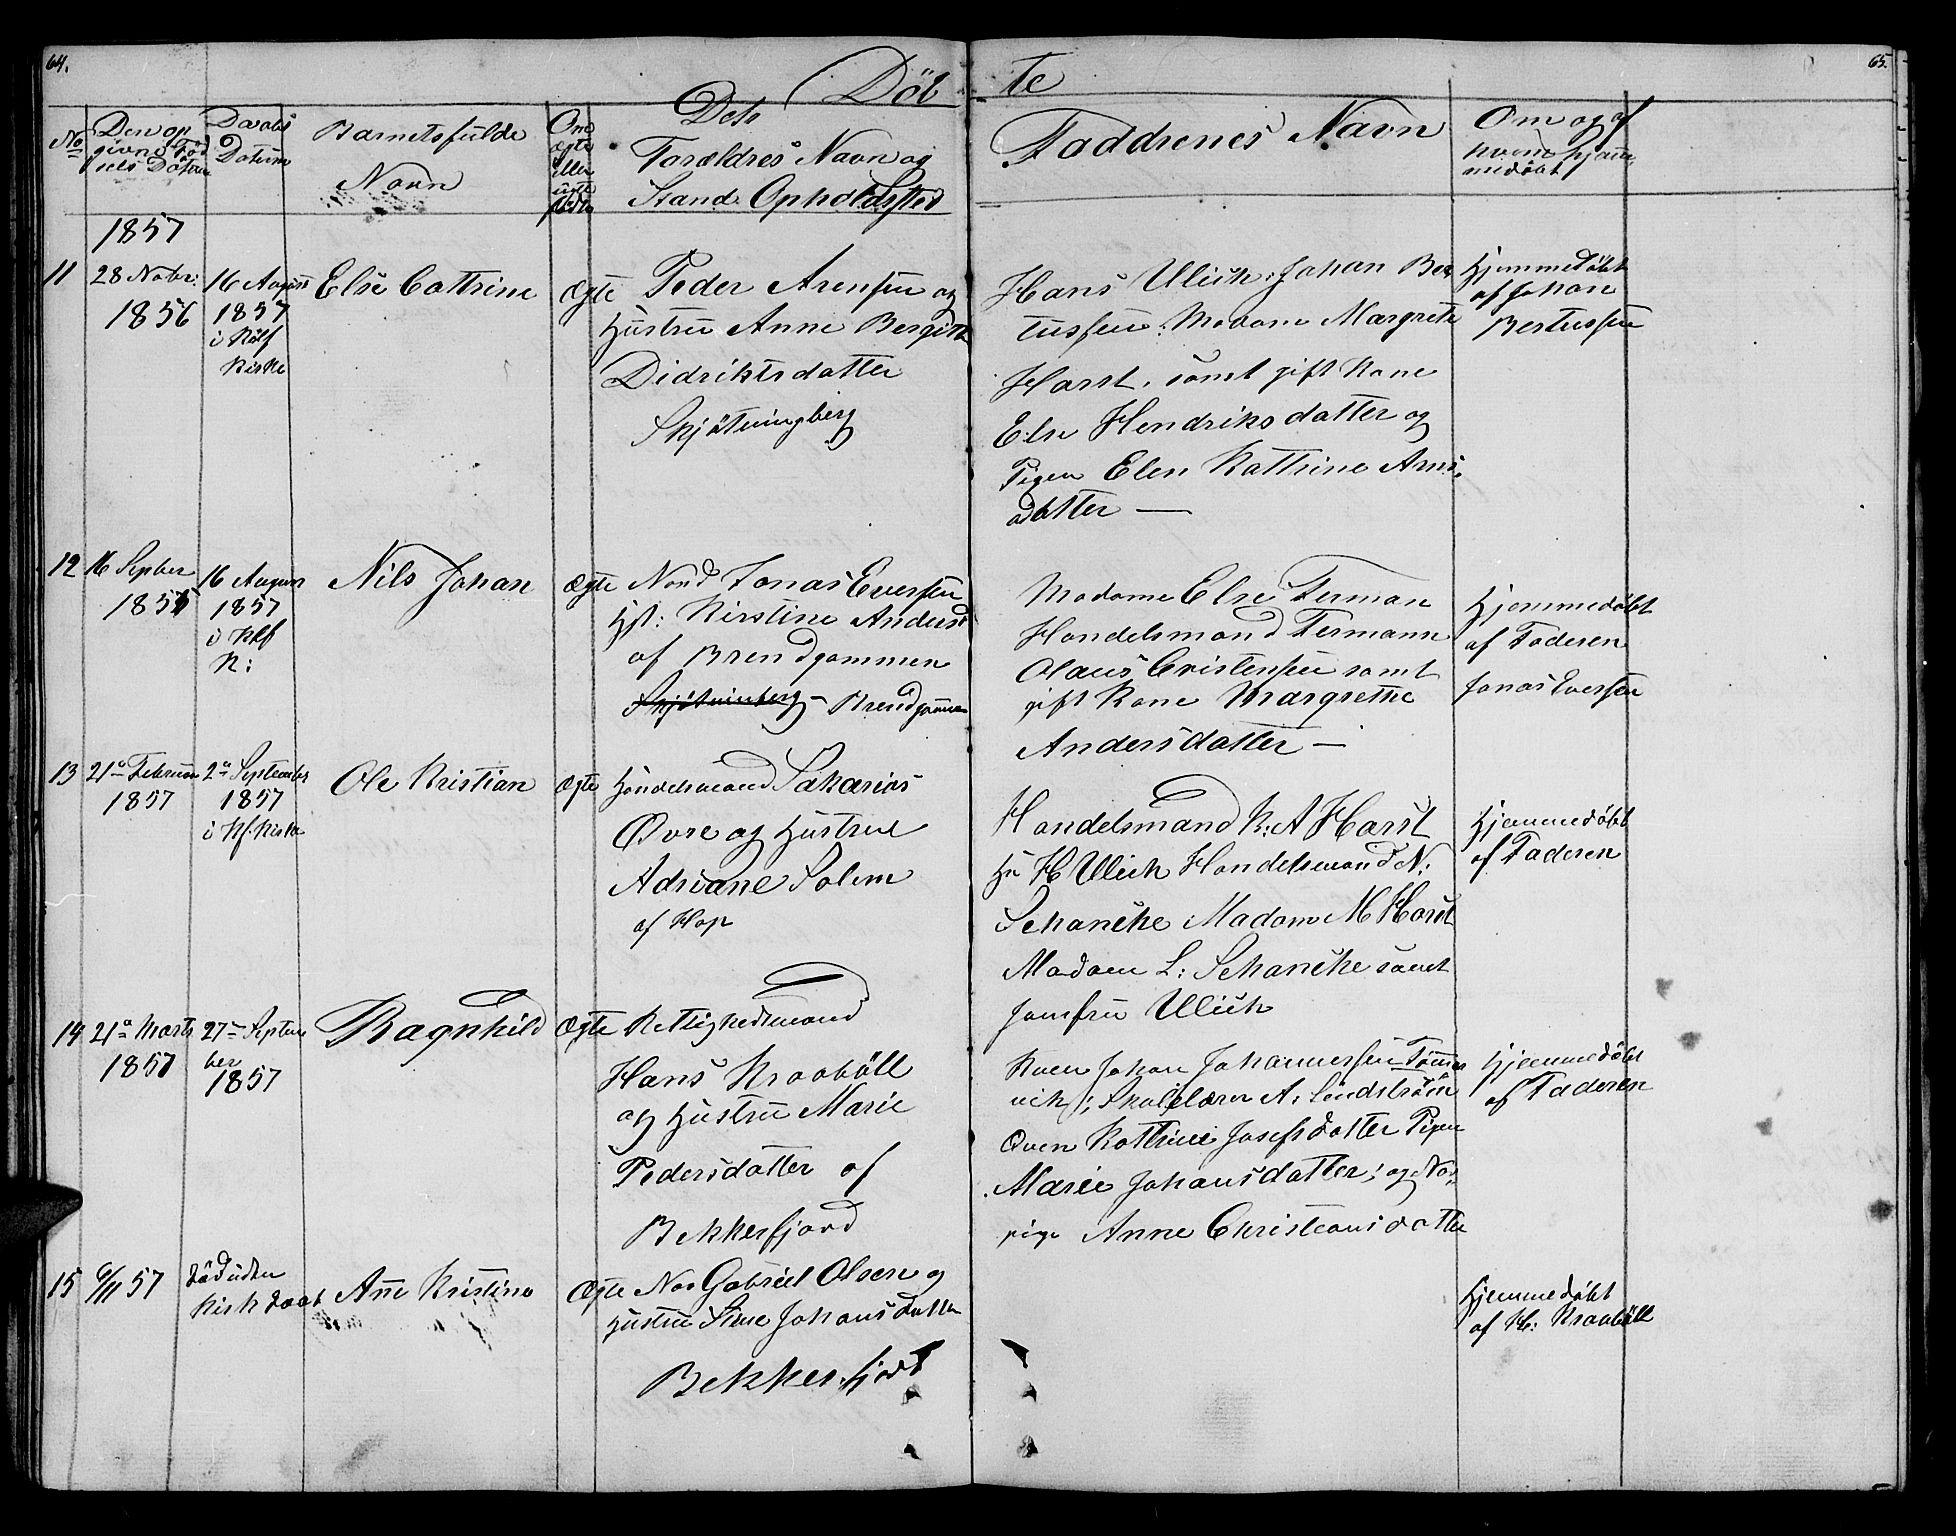 64.
65.
Döb te
No
Den op
givne Föd
sels Datum
Daabs
Datum
Barnets fulde
Navn
Om
ægte
eller
uægte
födte
Dets
Forældres Navn og
Stand Opholdssted
Faddrenes Navn
Om og af
hvem hjem
medöbt
1857
11
28 Nobr:
1856
16 August
1857
i Kölf
Kirke
Else Cattrine
Ægte
Peder Arensen og
Hustru Anne Bergitte
Didriktsdatter
Skjötningberg
Hans Ulich, Johan Ber
tussen: Madam Margrete
Horst, samt gift Kone
Else Hendriksdatter og
Pigen Elen Kattrine Arns
datter —
Hjemmedöbt
af Johan
Bertussen
12
16 Sepber
185
16 August
1857
i Klf
K:
Nils Johan
Ægte
Nord Jonas Eversen
Hst: Kirstine Andersd
af Brendgammen
Skjötninberg – Brendgammen
Madame Else Ferman
Handelsmand Fermann
Olaus Cristensen samt
gift Kone Margrethe
Andersdatter —
Hjemmedöbt
af Faderen
Jonas Eversen
13
21de Februar
1857
2den September
1857
i Kf. Kirke
Ole Kristian
Ægte
Handelsmand Sakarias
Qvre og Hustrue
Adriane Solem
af Hop
Handelsmand K: A Horst
Hr H Ulich Handelsmand N:
Schanche Madam M Horst
Madam L: Schanche samt
Jomfru Ulich
Hjemmedöbt
af Faderen
14
21de Marts
1857
27de Septem
ber
1857
Ragnhild
Ægte
Rettighedsmand
Hans Kraaböll
og Hustru Marie
Pedersdatter af
Bekkerfjord
Kven Johan Johannessen Tömmer
vik; Skolelærer A: Lindström
Qven Kattrine Josefsdatter Pigen
Marie Johansdatter; og Nor
pige Anne Christiansdatter
Hjemmedöbt
af Faderen
15
6/11 57
död uden
Kirk daab
Ane Kristine
Ægte
Nor Gabriel Olsen og
Hustru Sine Johansdatter
Bekkerfjord
Hjemmedöbt
af H: Kraaböll